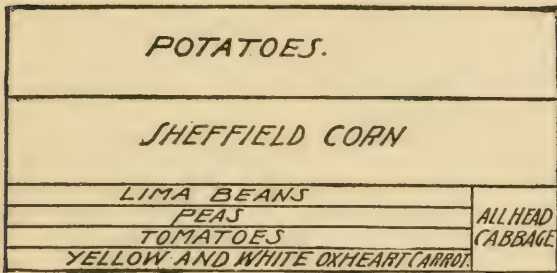 POTATOES.
SHEFFIELD CORN
LIMA BEANS
PEAS
TOMATOES
YELLOW AND WHITE OXHEART CARROT.
ALLHEAD
CABBAGE